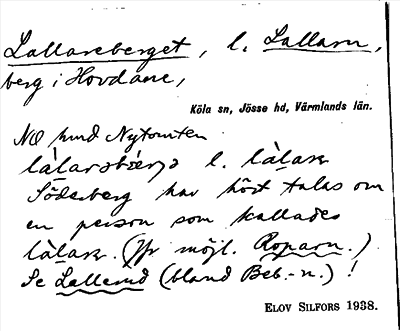 Lallareberget, l. Lallarn,
berg i Hovdane,
Köla sn, Jösse hd, Värmlands län.
NO hund Nytomten
l. làlarn
Söderberg har hört talas om
en person som kallades
làlarn. (Jfr möjl. Roparn.)
Se Lallerud (bland Beb.-n.) !
ELOV SILFORS 1938.